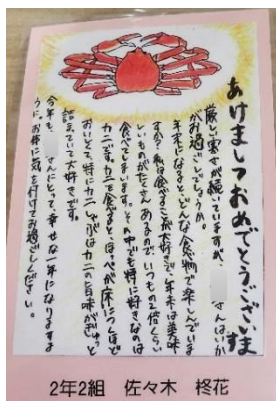 あけましておめでとうございます
厳しい寒さが続いていますが、 さんはいか
がお過ごしでしょうか。
年末になるとどんな食べ物で楽しんでいま
すか？私は食べることが大好きで、年末は美味
しいものがたくさんあるので、いつもの2倍くらい
食べてしまいます。その中でも特に好きなのは
カニです。カニを食べるとほっぺが床につくほど
おいしくて、特にカニしゃぶはカニの旨味がぎゅっと
詰まっていて大好きです。
今年も、 さんにとって、幸せな一年になりますよ
うに、お体に気を付けてお過ごしください。
2年2組 佐々木 柊花